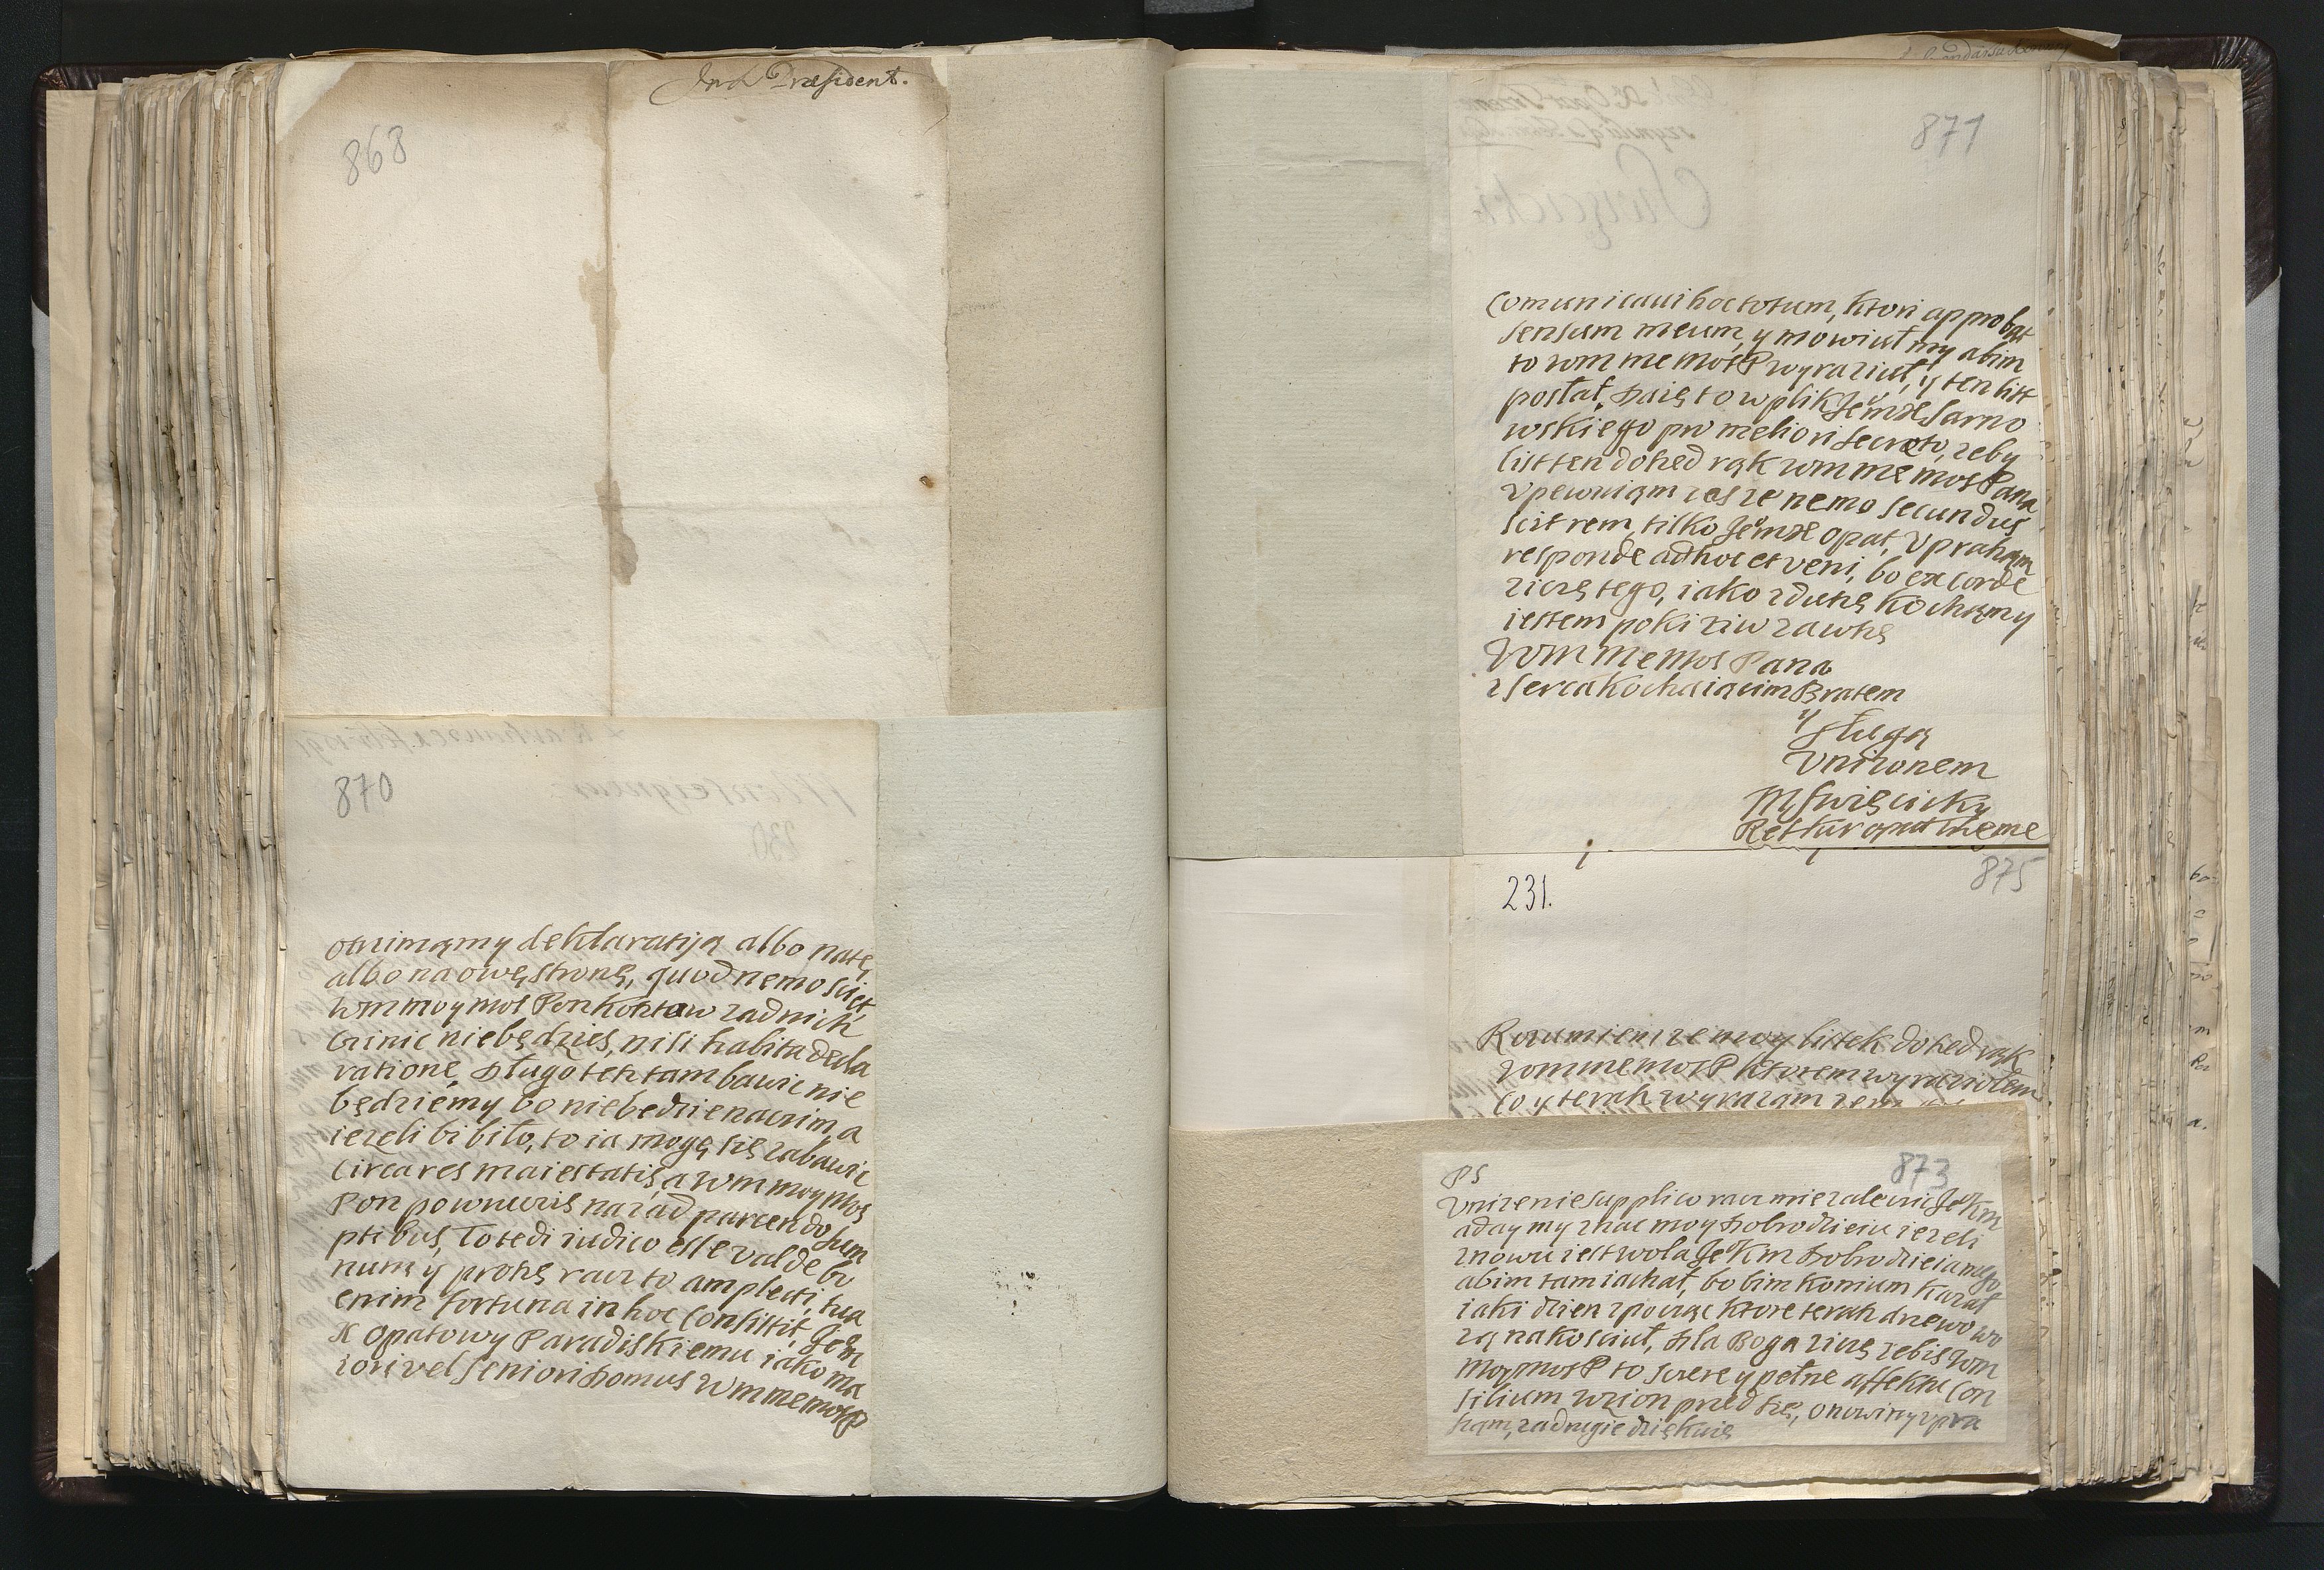 Præsident.
868
870
otrzimąmy deklaratiją albo natę
albo na owę stronę, quod nemo sciet
wm moy mos Pon kosztow zadnich
czinic niebędzies, nisi habita decla
ratione, Długo teh tam bawic nie
będziemy bo niebedzie naczim a
iezeli bi bilo, to ia mogę się zabawic
circa res maiestatis, a wm moy Mos
Pon powrucis nazad parcendo sum
ptibus, To tedi iudico esse valde bo
num y prohę racz to amplecti, tua
enim fortuna in hoc Consistit, Jem
X Opatowy Paradiskiemu iako ma
iori vel seniori Domus Wm me mosP
871
Comunicaui hoc totum, ktori approbat
sensum meum, y mowiuł my abim
to wm me mos P wyraziuł, y ten list
posłał, Daię to w plik Jemx Sarno
wskiego pro meliori secreto, zeby
list ten dohed rąk wm me mos Pana
Vpewniąm zas ze nemo secundus
scit rem, tilko Jemx Opat, Vpraham
responde ad hoc et veni, bo ex corde
ziczę tego, iako z duhę kochąmy
iestem poki ziw zawhę
Wm me Mos Pana
z serca kochaiącim Bratem
y Slugą
Vnizonem
M Swięcicky
231.
875
Rozumiem ze moy listek dohed rąk
wm me mos P ktorem wyraziołem
co y terah wyrazam
873
PS
Vnizenie supplico racz mie zalecic JeKm
a day my znac moy Dobrodzieiu iezeli
znowu iest wola JeKm Dobrodzieia mego
abim tam iachał, bo bim konium kazał
iaki dzien zpocząc ktore terah drzewo wo
zą na kosciuł, Dla Boga ziczę zebis wm
moy mos P to scere y pełne affektu Con
silium wzion pred się, o nowiny vpra
ham, za drugie dziękuię